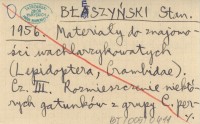 BŁESZYŃSKI Stan.
1956. Materiały do znajomo-
ści wachlarzykowatych
(Lepidoptera, Crambidae).
Cz. III. Rozmieszczenie niektó-
rych gatunków z grupy C. per-